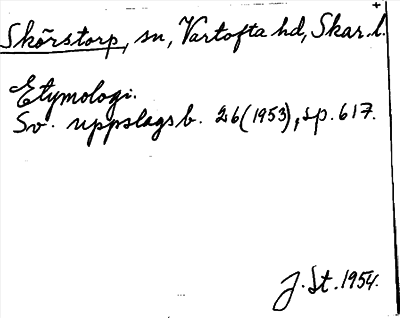 Skörstorp, sn, Vartofta hd, Skar. l.
Etymologi.
Sv. uppslagsb. 26 (1953), sp. 617.
J. St. 1954.